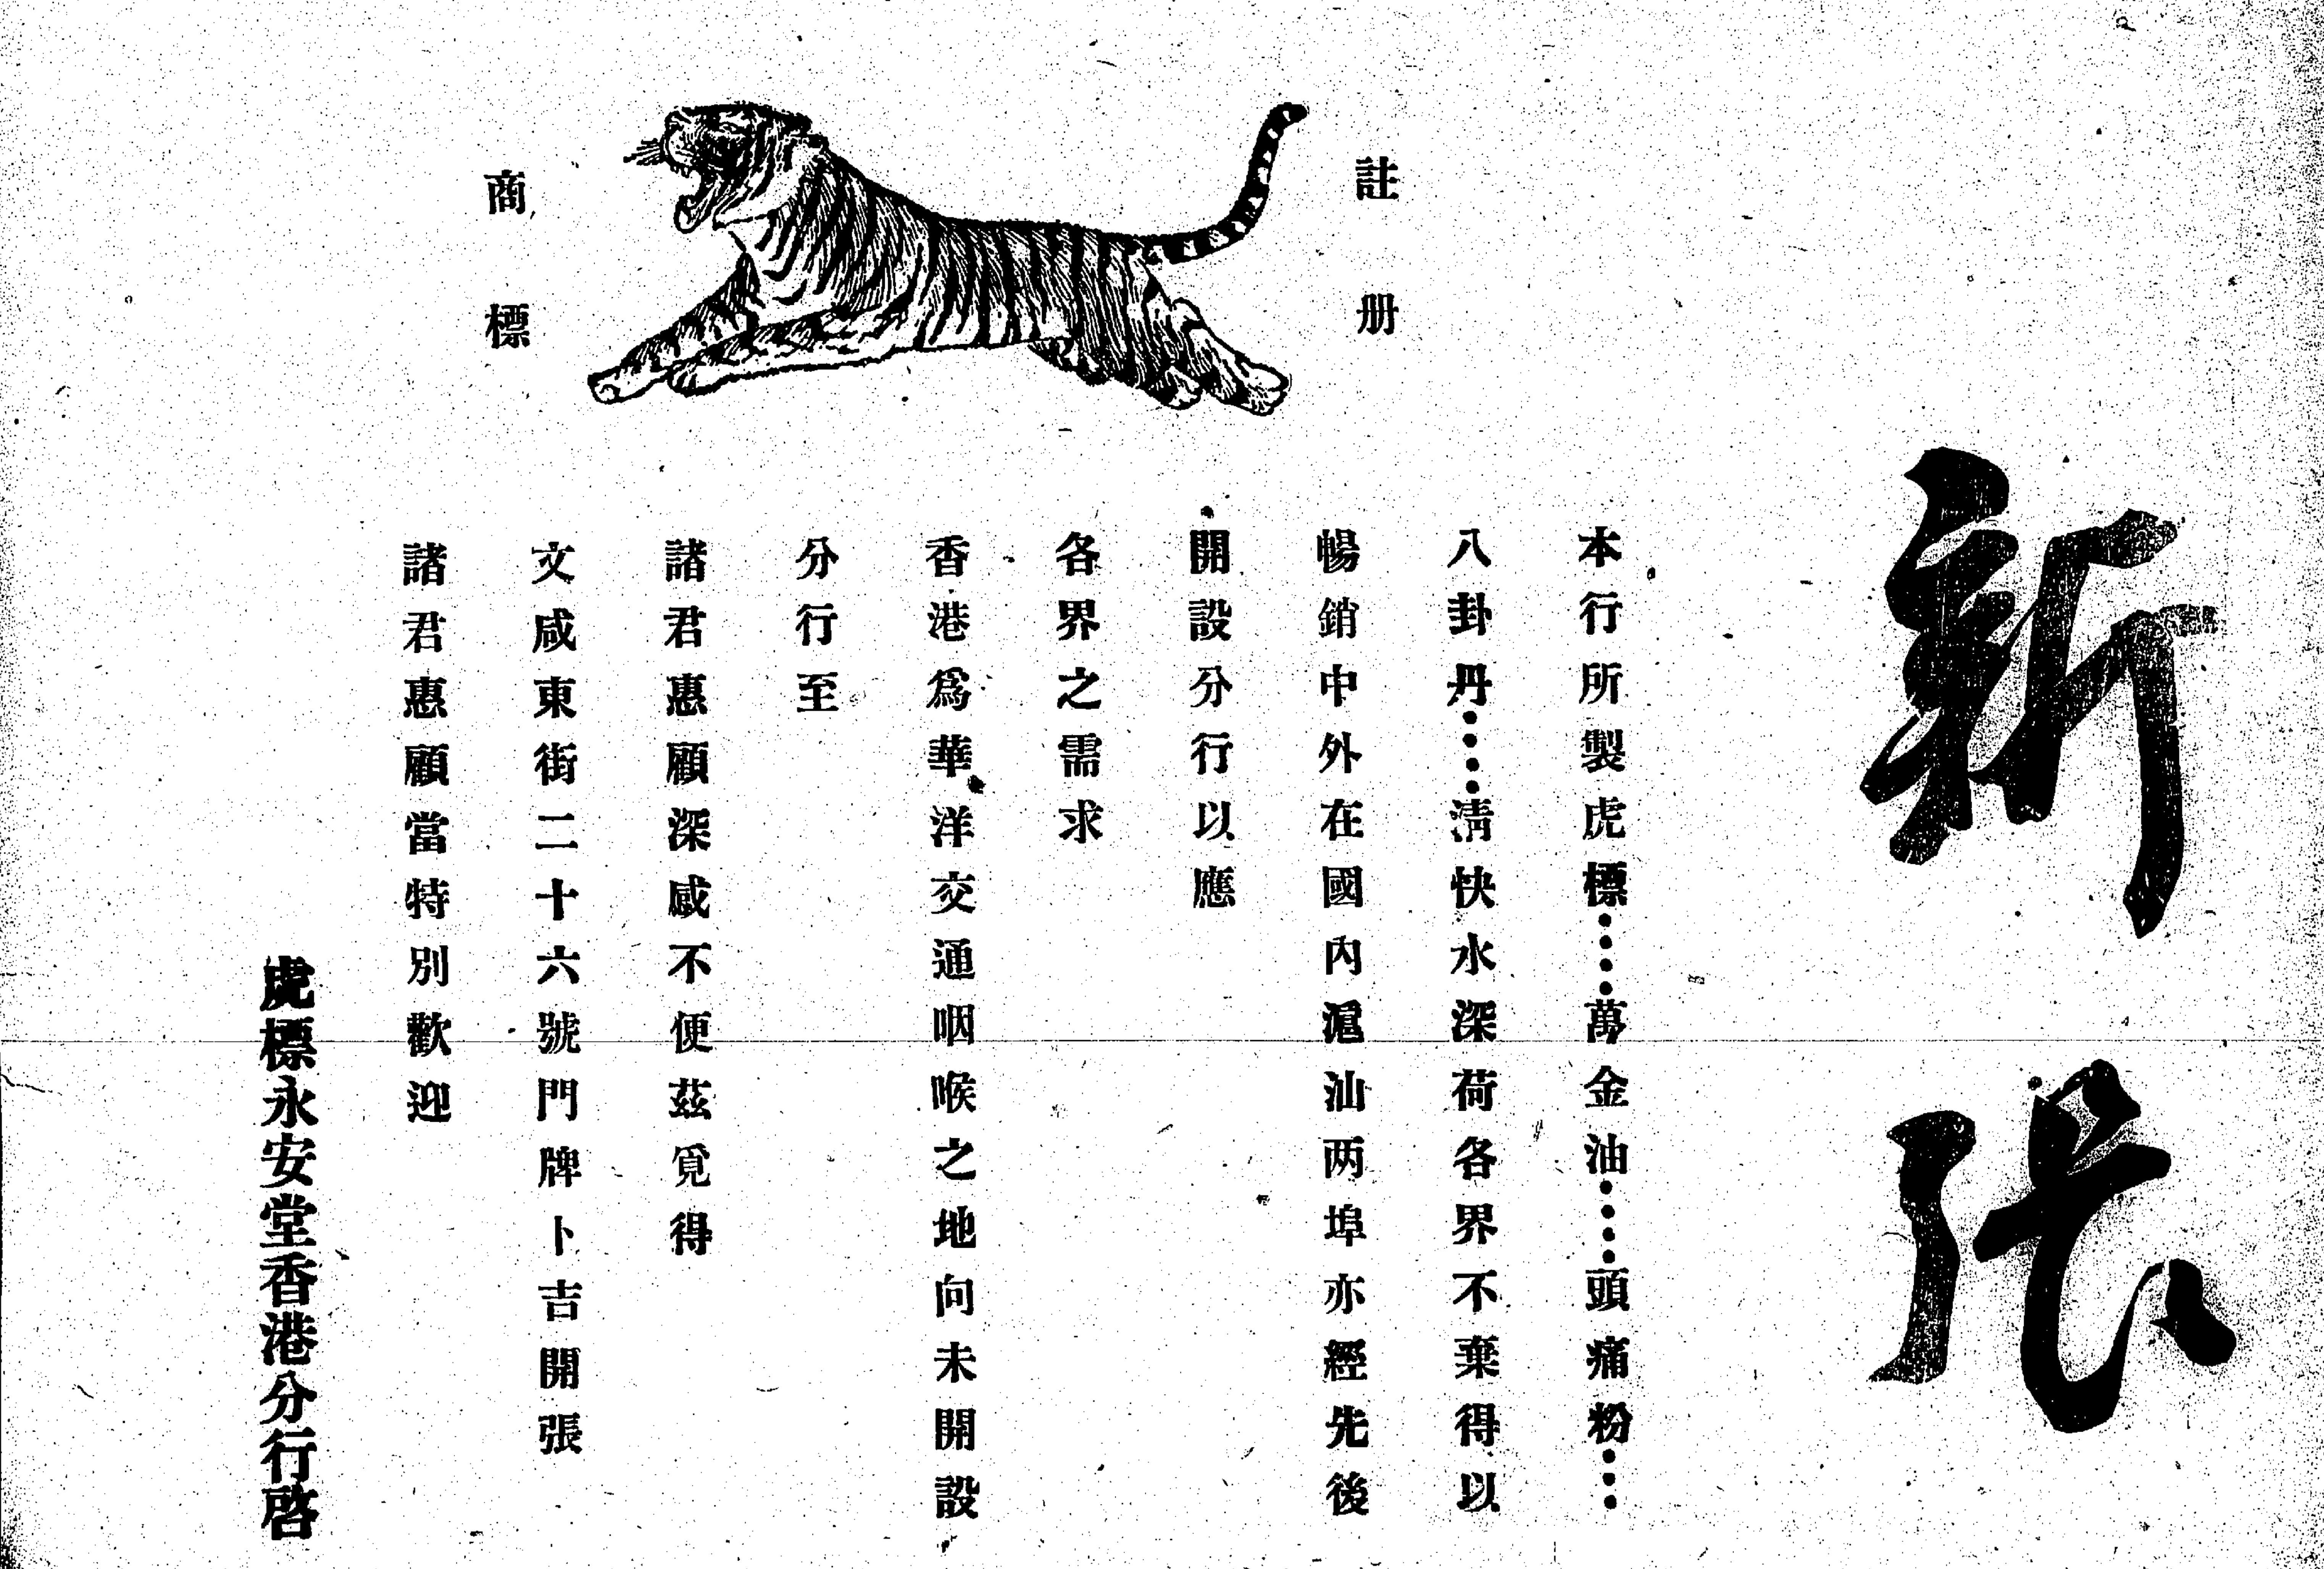 新張
註册
商標
本行所製虎標⋯⋯萬金油⋯⋯頭痛粉⋯⋯
八卦丹⋯⋯淸快水深荷各界不棄得以
暢銷中外在國內滬汕两埠亦經先後
開設分行以應
各界之需求
香港爲華洋交通咽喉之地向未開設
分行至
諸君惠顧深感不便茲覓得
文咸東街二十六號門牌卜吉開張
諸君惠顧當特別歡迎
虎標永安堂香港分行啓